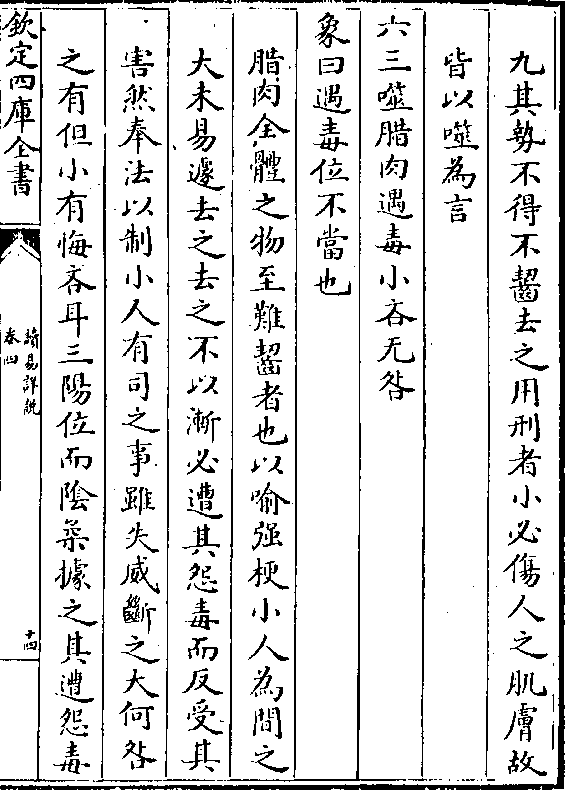 九其勢不得不齧去之用刑者小必傷人之肌膚故
皆以噬為言
六三噬腊肉遇毒小吝无咎
象曰遇毒位不當也
腊肉全體之物至難齧者也以喻强梗小人為間之
大未易遽去之去之不以漸必遭其怨毒而反受其
害然奉法以制小人有司之事雖失威斷之大何咎
之有但小有悔吝耳三陽位而陰柔據之其遭怨毒
欽定四庫全書
讀易詳說
卷四
十四